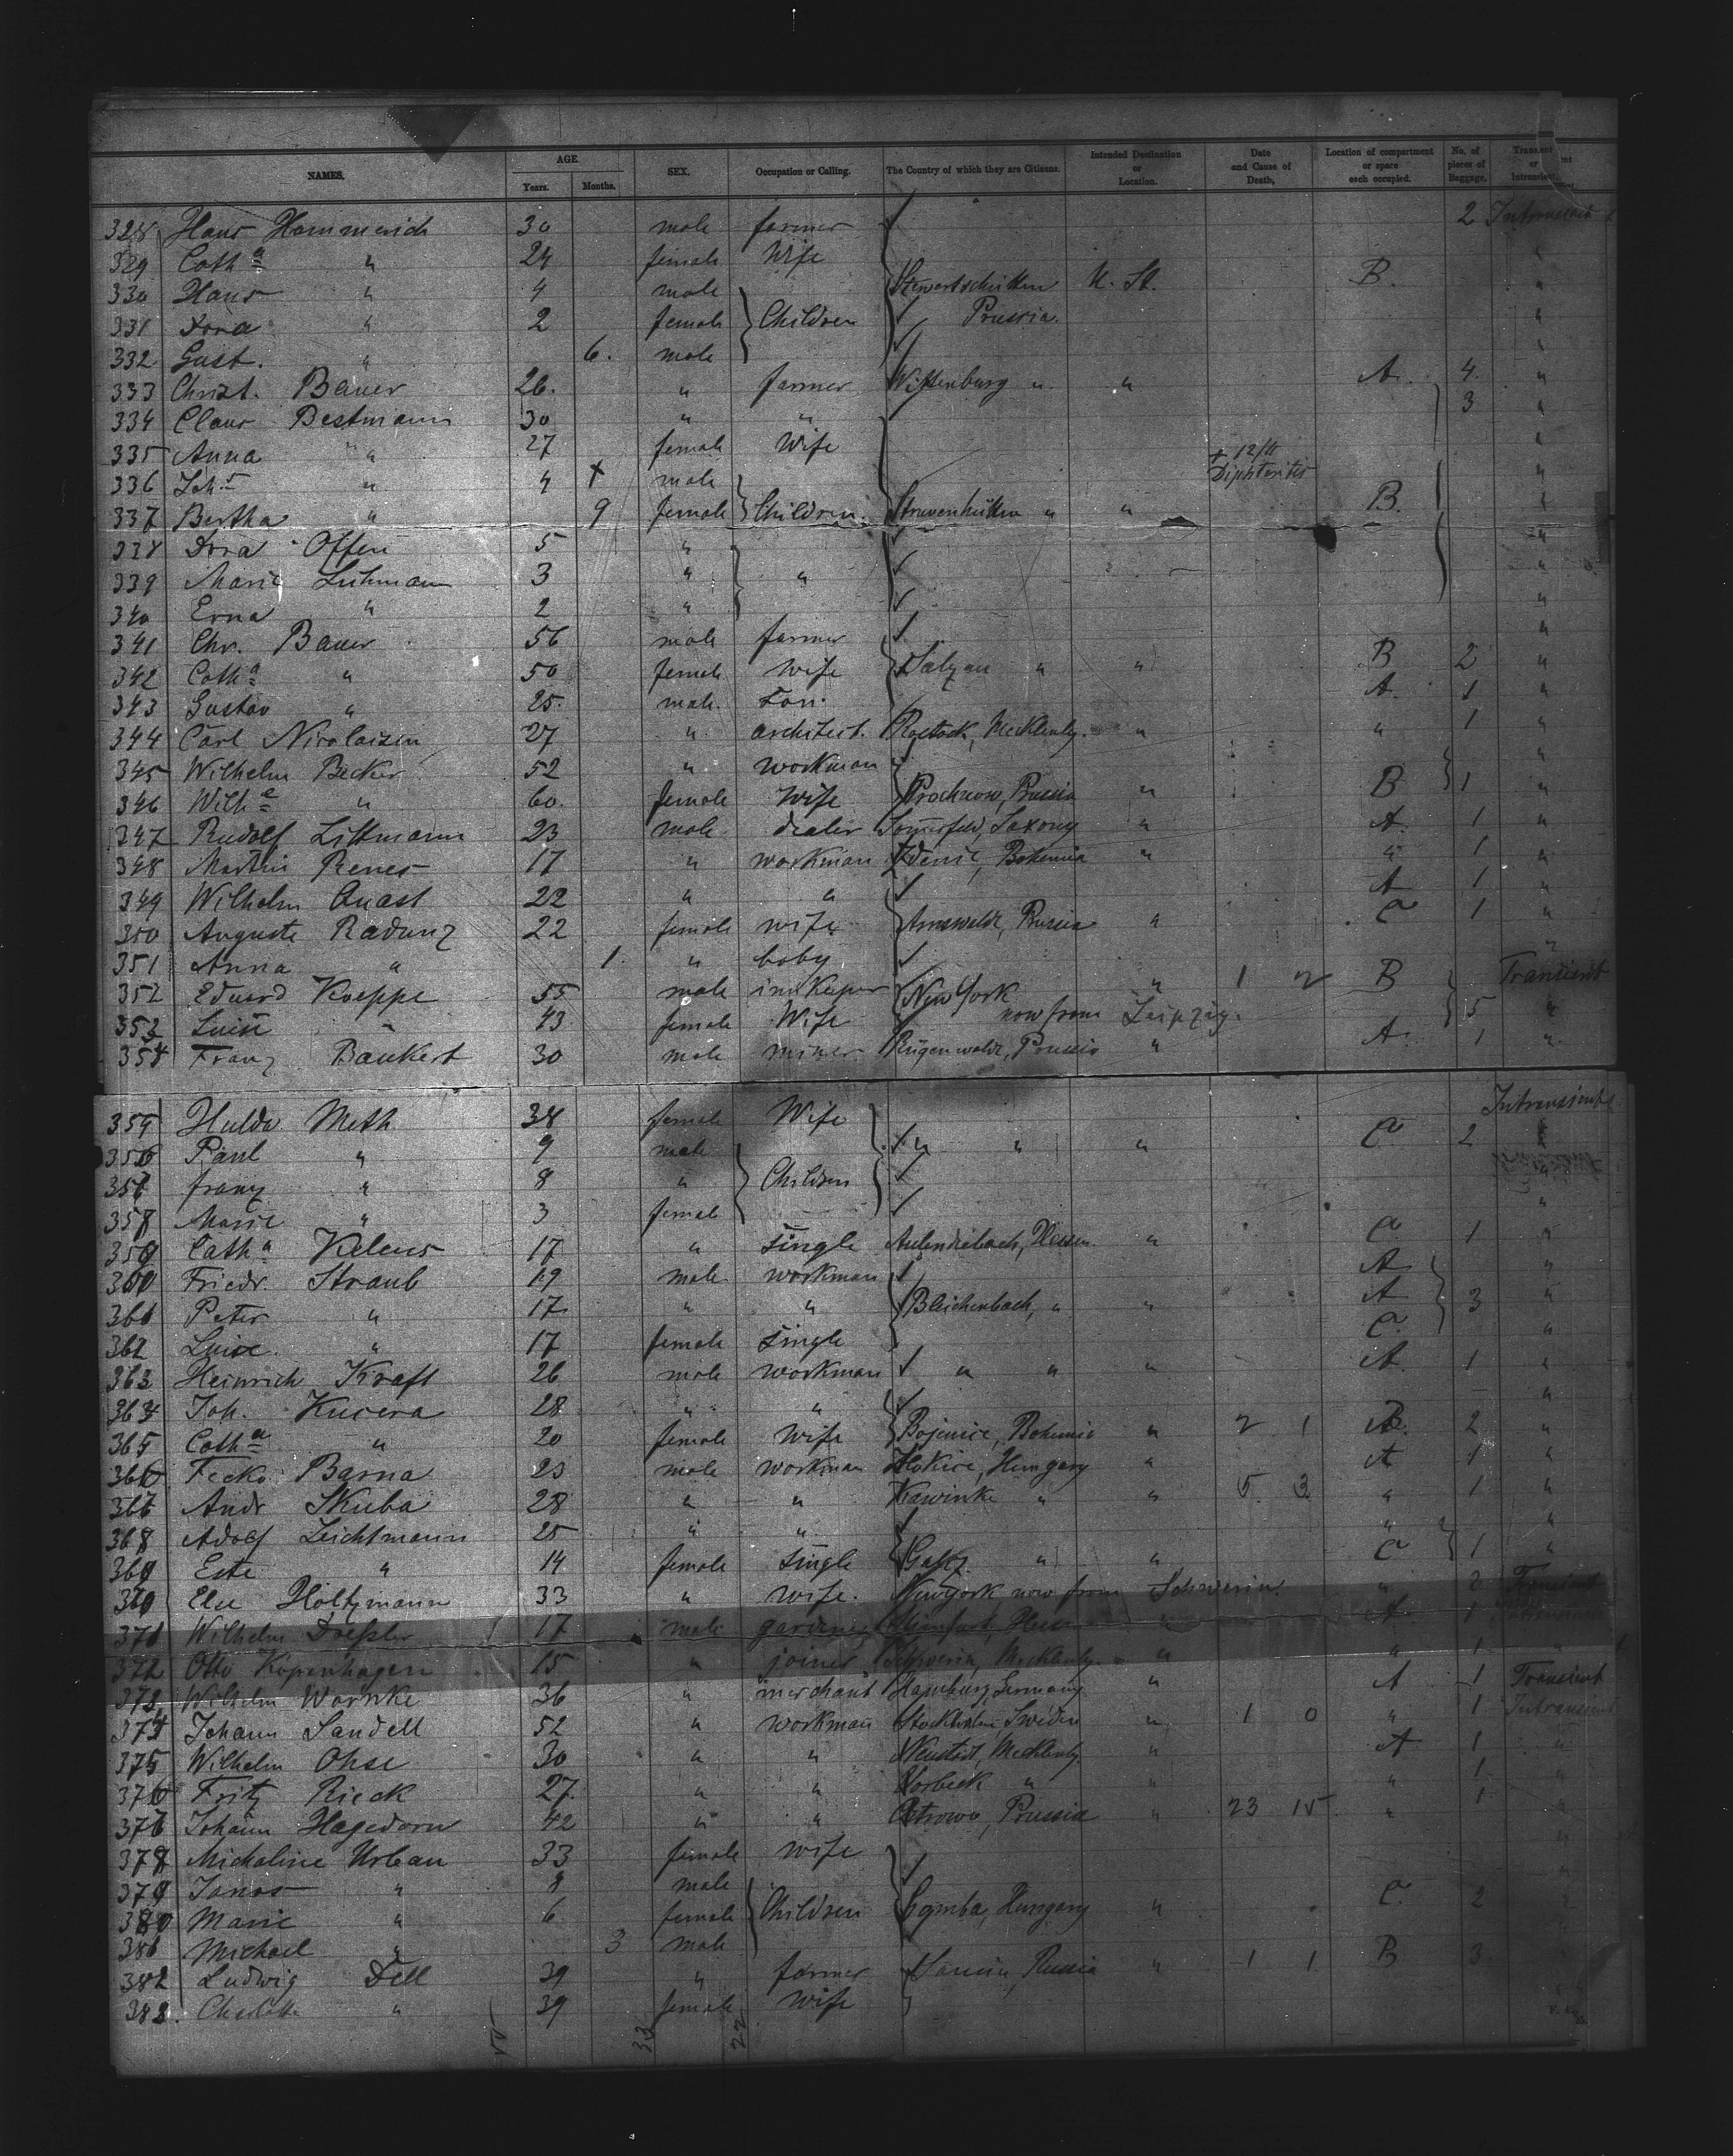 NAMES. AGE. Years. Months. SEX. Occupation or Calling. The Country of which they are Citizens. Intended Destination or Location. Date and Cause of Death, Location of compartment or space each occupied. No. of pieces of Baggage, Transient or Intransient.
328 Hans Hammerich 30 male farmer 2 Intransient
329 Cath a " 24 female Wife "
330 Hans " 4 male U. St. B. "
331 Dora " 2 female Children Prussia. "
332 Gust. " 6. male "
333 Christ. Bauer 26. " farmer Wittenburg " " A. 4. "
334 Claus Bestmann 30 " " 3 "
335 Anna " 27 female Wife "
336 Joh. " 4 + male + 12/4 Diphteritis "
337 Bertha " 9 female Children. Struvenhütten " " B. "
338 Dora Offen 5 " "
339 Marie Luhmann 3 " " "
340 Erna " 2 " "
341 Chr. Bauer 56 male farmer "
342 Cath a " 50 female Wife Salzau " " B 2 "
343 Gustav " 25. male. Son. A. 1 "
344 Carl Nicolaisen 27 " architect. Rostock, Mecklenbg. " " 1 "
345 Wilhelm Becker 52 " workman "
346 Wilh e " 60. female Wife Prochnow, Prussia " B 1 "
347 Rudolf Littmann 23 male dealer Sommerfeld, Saxony " A. 1 "
348 Martin Renes 17 " workman Zdenic, Bohemia " " 1 "
349 Wilhelm Quast 22 " " A 1 "
350 Auguste Radunz 22 female wife Arnswalde, Prussia " C 1 "
351 Anna " 1. " baby "
352 Eduard Koeppe 55 male innkeeper New York " 1 2 B Transient
353 Luise " 43 female Wife now from Leipzig. 5 "
354 Franz Bankert 30 male miner Rügenwalde, Prussia " A. 1 "
355 Hulda Meth 34 female Wife Intransient
356 Paul " 9 male " " " C 2 "
357 franz " 8 " Children
358 Marie " 3 female "
359 Cath a Kelens 17 " single Aulendiebach, Hessen. " C. 1 "
360 Friedr. Straub 19 male workman A "
361 Peter " 17 " " Bleichenbach, " " A 3 "
362 Luise. " 17 female single C. "
363 Heinrich Kraft 26 male workman " " " A. 1 "
364 Joh. Kucera 28 " " "
365 Cath a " 20 female Wife Bojenice, Bohemia " 2 1 B. 2 "
366 Fecko Barna 23 male workman Hungary " A 1 "
367 Andr Skuba 28 " " Kawinke " " 5 3 " 1 "
368 Adolf Leichtmann 25 " " " "
369 Este " 14 female single Galiz. " " C 1 "
370 Else Holtzmann 33 " wife. New York now from Schwerin. " 2 Transient
371 Wilhelm Dressler 17 male gardener " A 1 Intransient
372 Otto Kopenhagen 15 " joiner Schwerin, Mecklenbg. " " 1 "
373 Wilhelm Warnke 36 " merchant Hamburg, Germany " A 1 Transient
374 Johann Sandell 52 " workman Stockholm, Sweden " 1 0 " 1 Intransient
375 Wilhelm Ohse 30 " " Neustadt, Mecklenbg. " A 1 "
376 Fritz Rieck 27. " " Vorbeck " " " 1. "
377 Johann Hagedorn 42 " " Ostrowo, Prussia " 23 15 " 1 "
378 Michaline Urban 33 female wife "
379 Janos " 8 male "
380 Marie " 6 female Children Hungary " C. 2
381 Michael " 3 male
382 Ludwig Dell 39 " farmer Russia " 1 1 B 3.
383. Charlotte " 39 female Wife
55 33 22